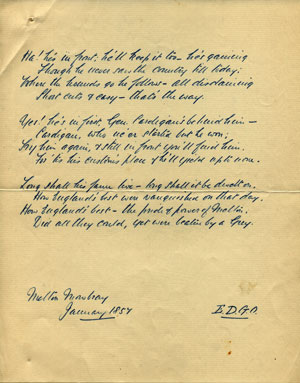 Ha! he's in front, he'll keep it too - he's gaining
Though he never saw the country till today:
Where the hounds go he follows - all disclaiming
Short cuts & easy - that's the way.
Yes! he's in first, Gen. Cardigan's behind him -
Cardigan, who ne'er starts but he won;
Try him again, & still in front you'll find him.
'Tis his custom's place & he'll yield up to none.
Long shall his fame live - long shall it be dwelt on.
How England's best were vanquished on that day.
How England's best - the pride & power of Melton,
Did all they could, yet were beaten by a Grey.
Melton Mowbray
January 1857
E.D.F.D.